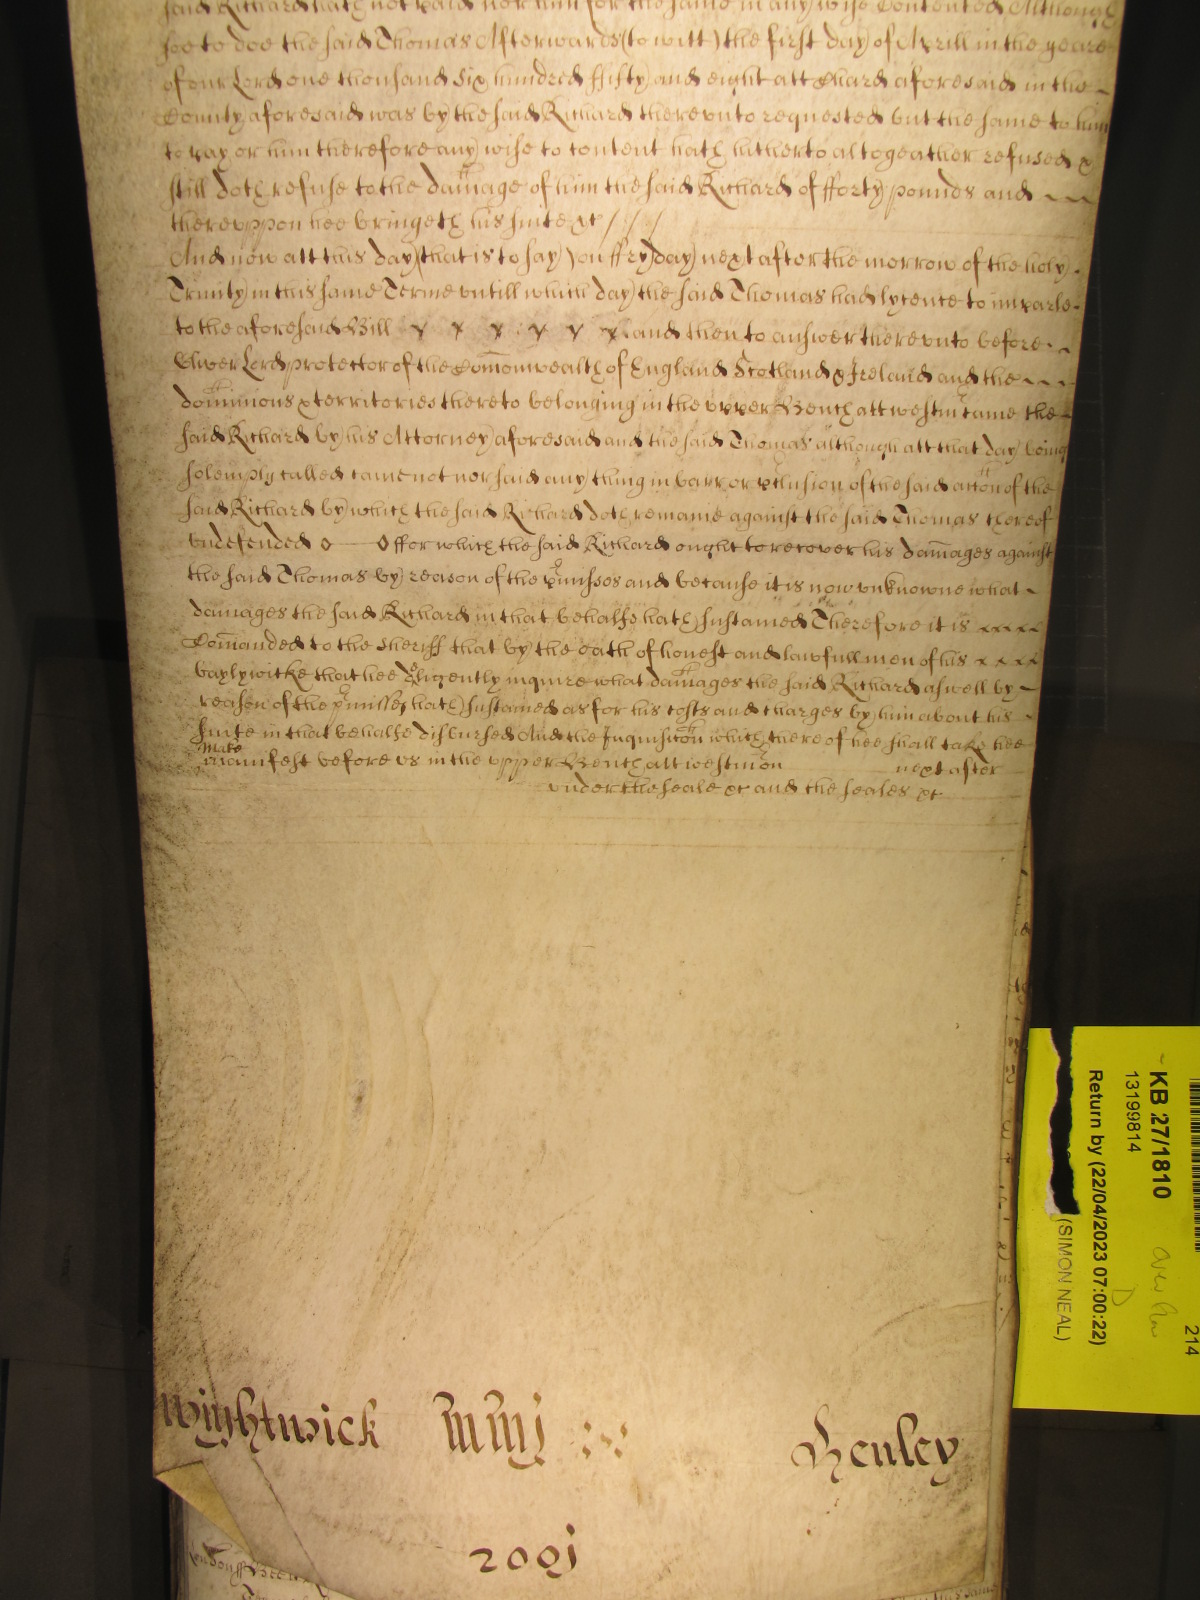 said Richard hath not paid nor him for the same in any wise Contented Although
soe to doe the said Thomas Afterwards (to witt) the first day of Aprill in the yeare
of our Lord one thousand six hundred ffifty and eight att Chard aforesaid in the
County aforesaid was by the said Richard therevnto requested but the same to him
to pay or him therefore any wise to content hath hitherto altogeather refused &
still doth refuse to the damage of him the said Richard of fforty pounds and
therevppon hee bringeth his suite &c ///
And now att this day (that is to say) on ffryday next after the morrow of the holy
Trinity in this same Terme vntill which day the said Thomas had lycence to imparle
to the aforesaid Bill x x x x x x and then to answer therevnto before
Oliver Lord protector of the Comonwealth of England Scotland & Ireland and the
dominions & territories thereto belonging in the vpper Bench att westm came the
said Richard by his Attorney aforesaid and the said Thomas although att that day being
solemply called came not nor said any thing in barr or p̱clusion of the said accon of the
said Richard by which the said Richard doth remaine against the said Thomas thereof
vndefended o — o ffor which the said Richard ought to recover his damages against
the said Thomas by reason of the p̱misses and because it is now vnknowne what
damages the said Richard in that behalfe hath sustained Therefore it is
Comanded to the Sheriff that by the oath of honest and lawfull men of his
baylywicke that hee diligently inquire what damages the said Richard aswell by
reason of the p̱misses hath sustained as for his costs and charges by him about his
suite in that behalfe disbursed And the Inquisicon which thereof hee shall take hee
Make
manifest before vs in the vpper Bench att westm on next after
vnder the seale &c and the seales &c
Wightwick Henley
2001
KB 27/1810
13199814
Return by (22/04/2023 07:00:22)
(SIMON NEAL)
214